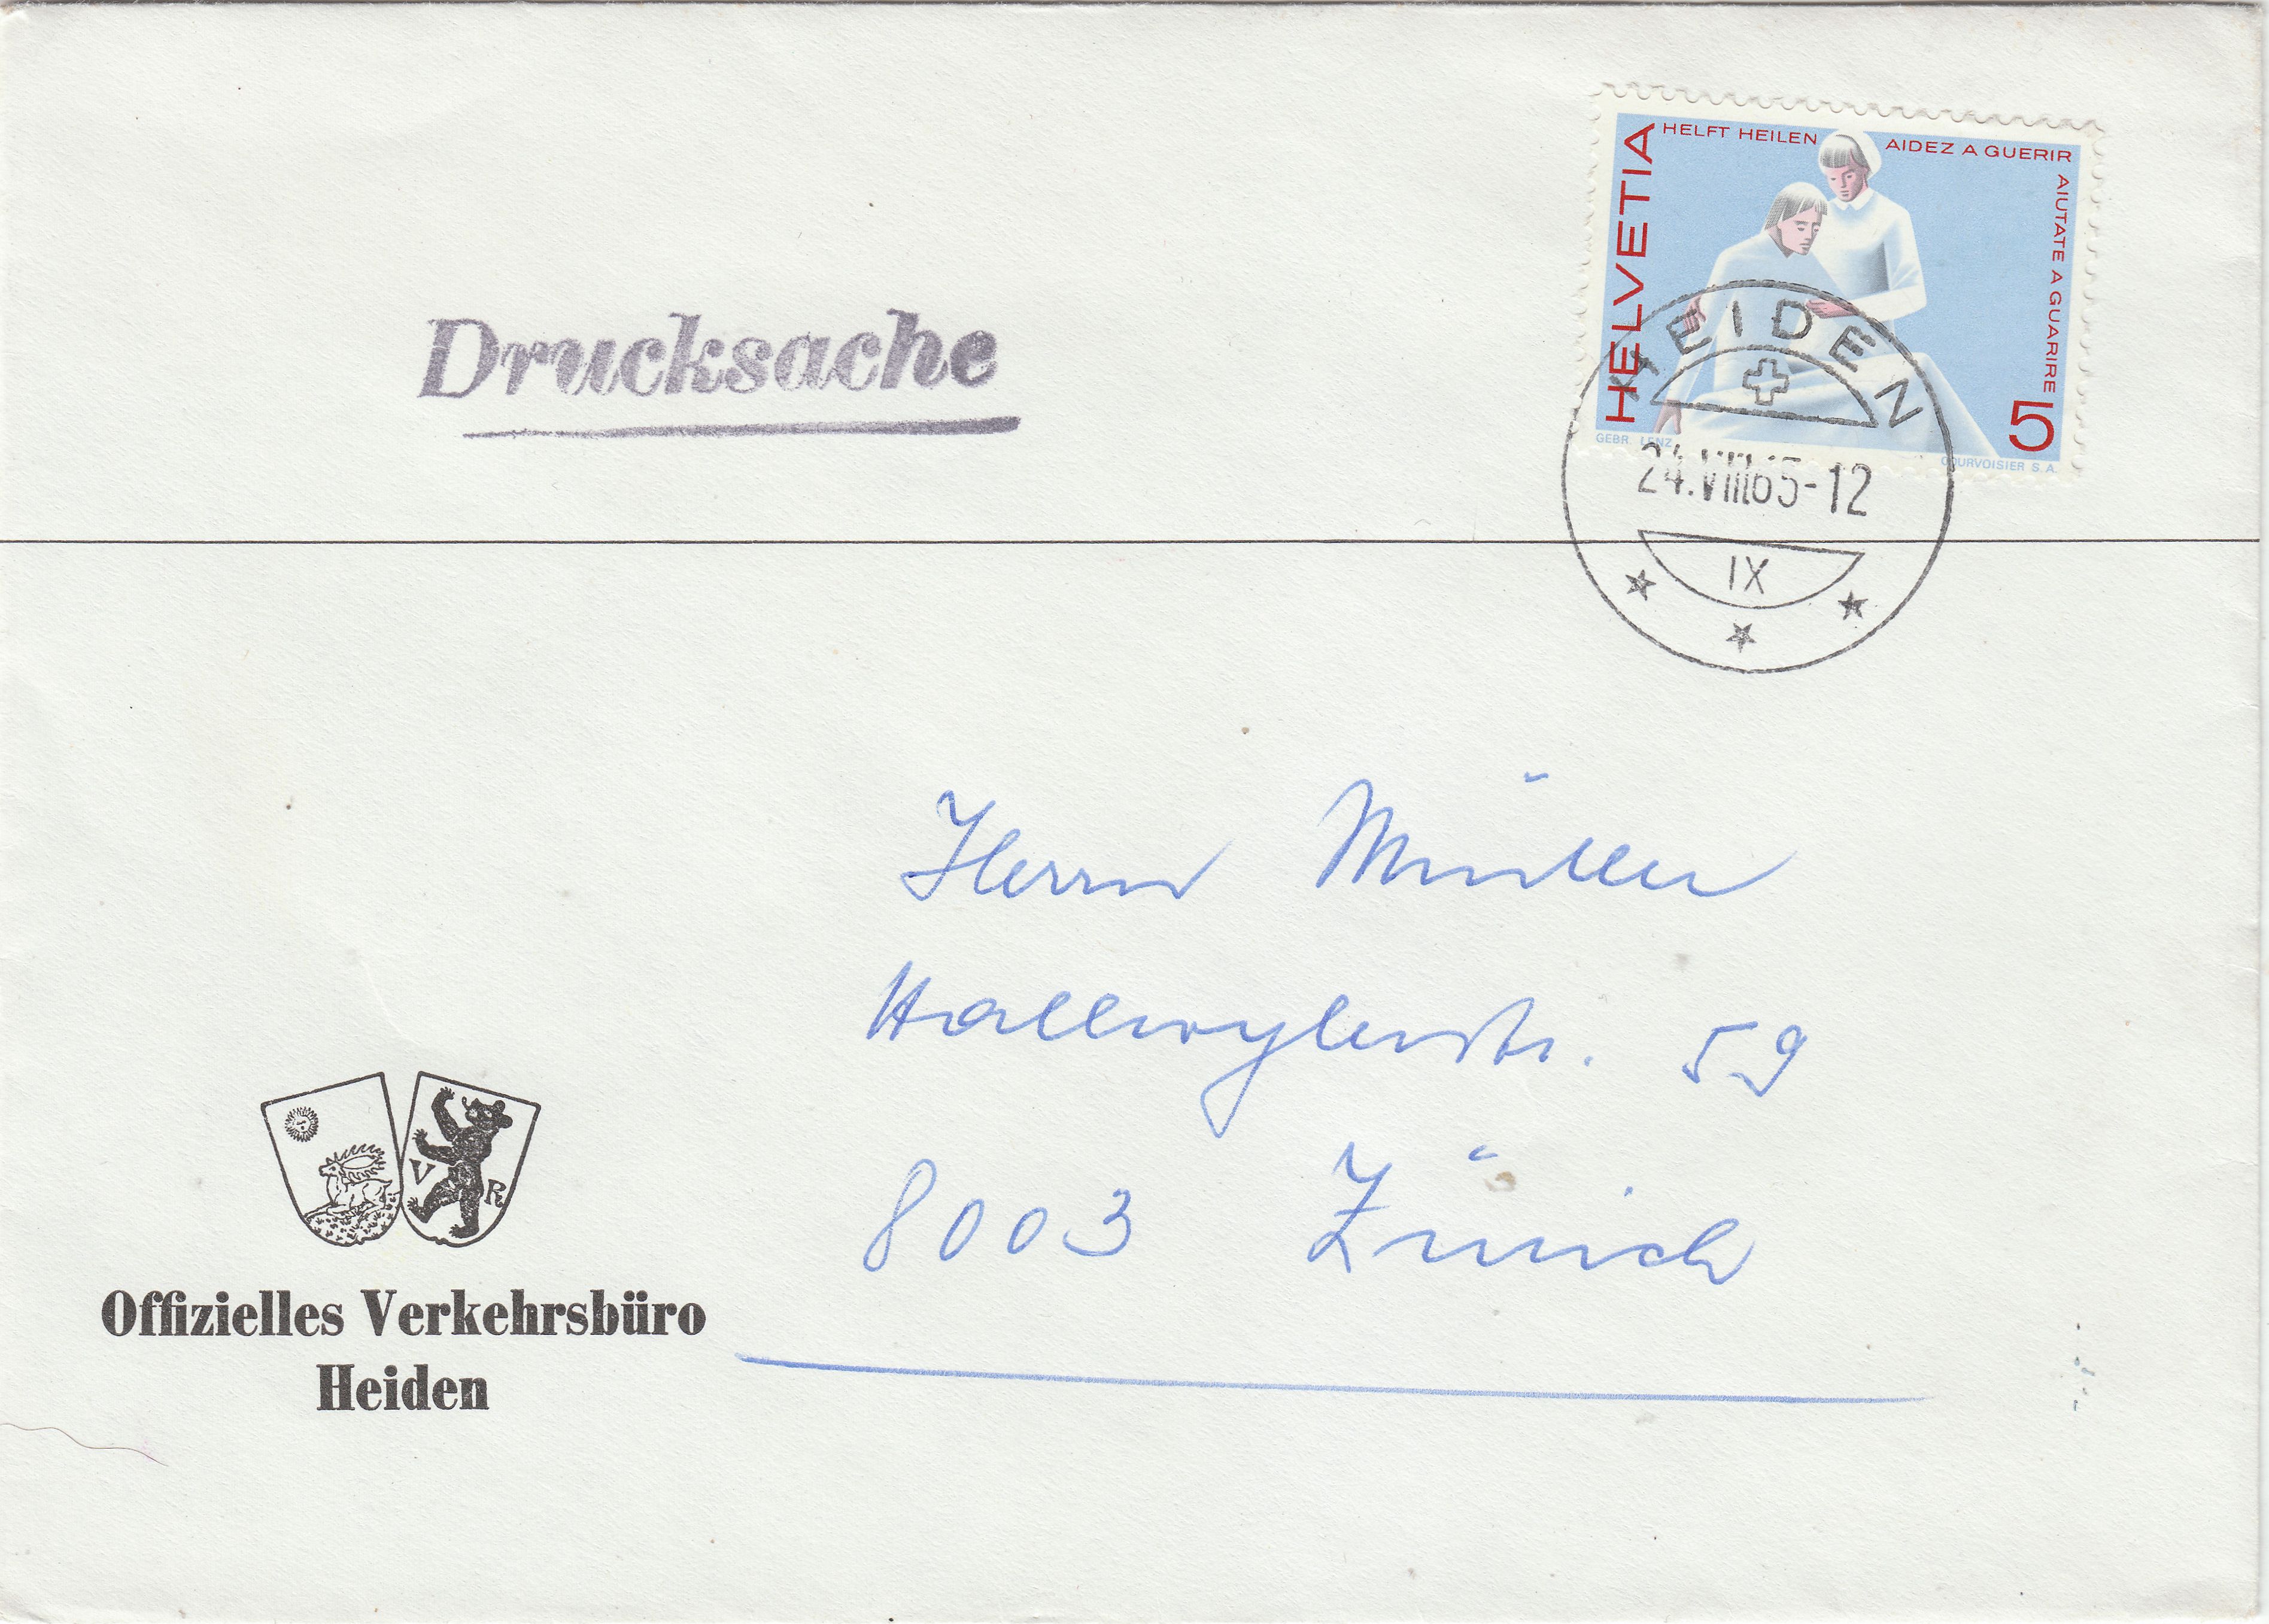 HELVETIA
HELFT HEILEN AIDEZ A GUERIR
AIUTATE A GUARIRE
5
GEBR. LENZ
COURVOISIER S.A.
HEIDEN
24.VIII.65-12
IX
Drucksache
Herrn Müller
Hallwylerstr. 59
8003 Zürich
V R
Offizielles Verkehrsbüro
Heiden